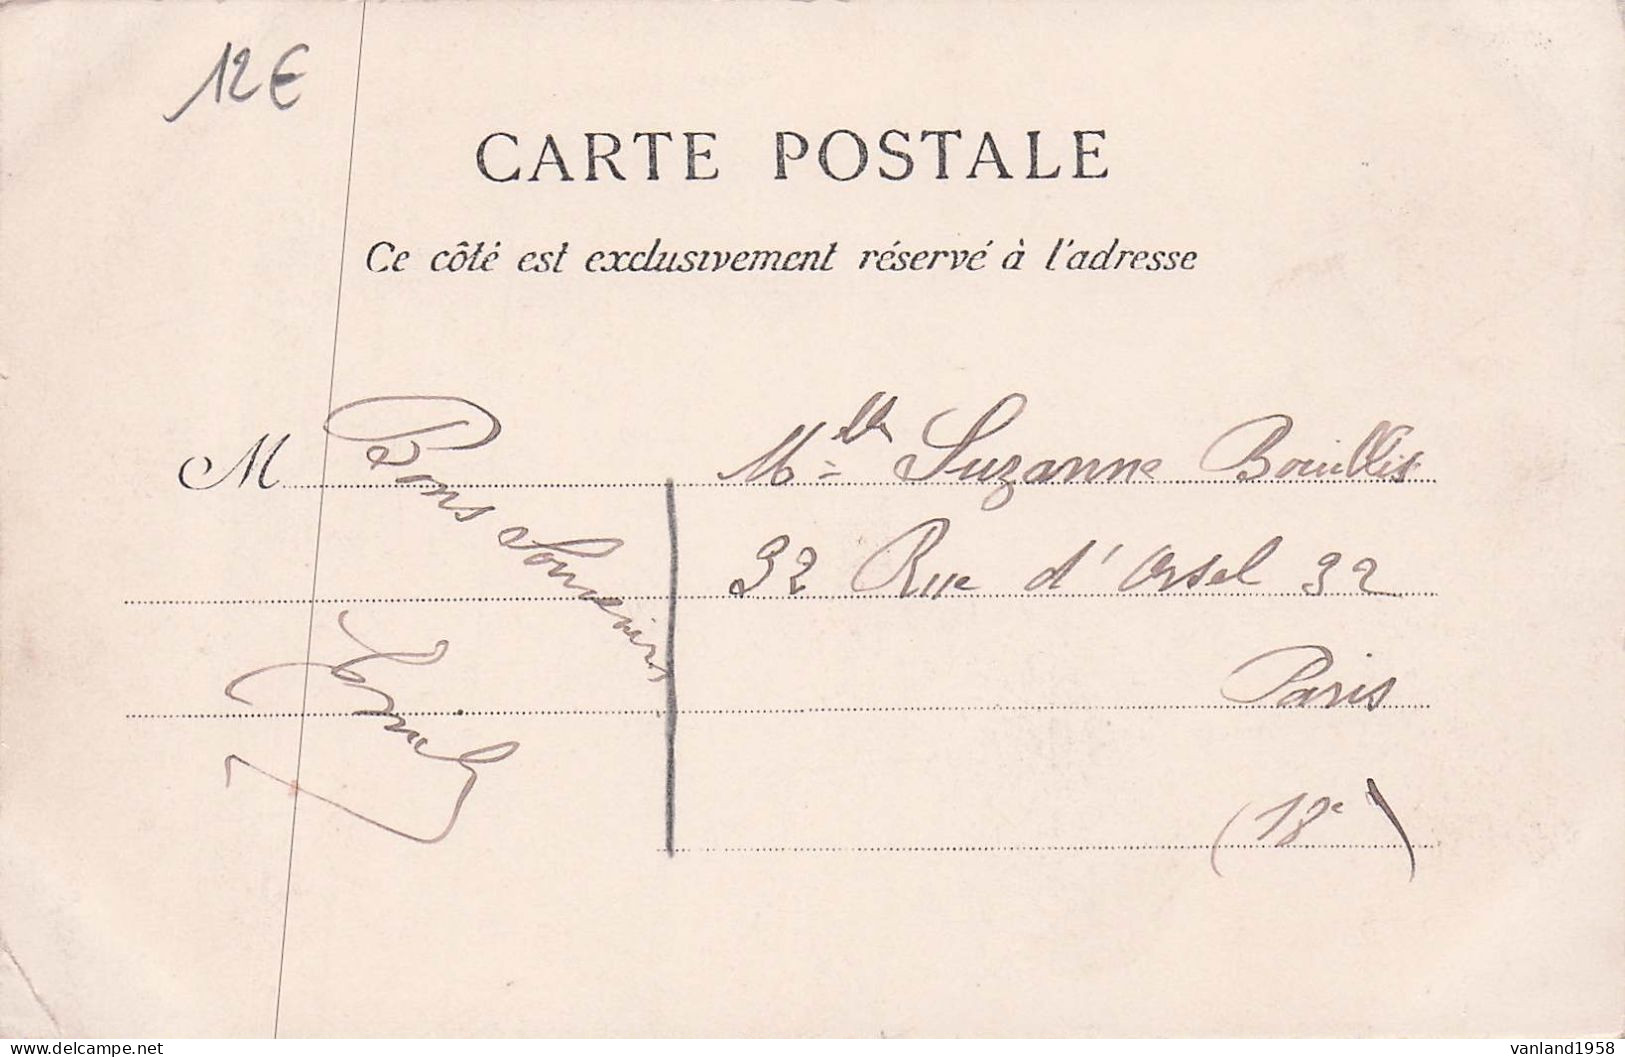 12€
CARTE POSTALE
Ce côté est exclusivement réservé à l'adresse
M
Bons Souvenirs
Mlle Suzanne Bouillis
32 Rue d'Orsel 32
Paris
(18e)
www.delcampe.net
vanland1958